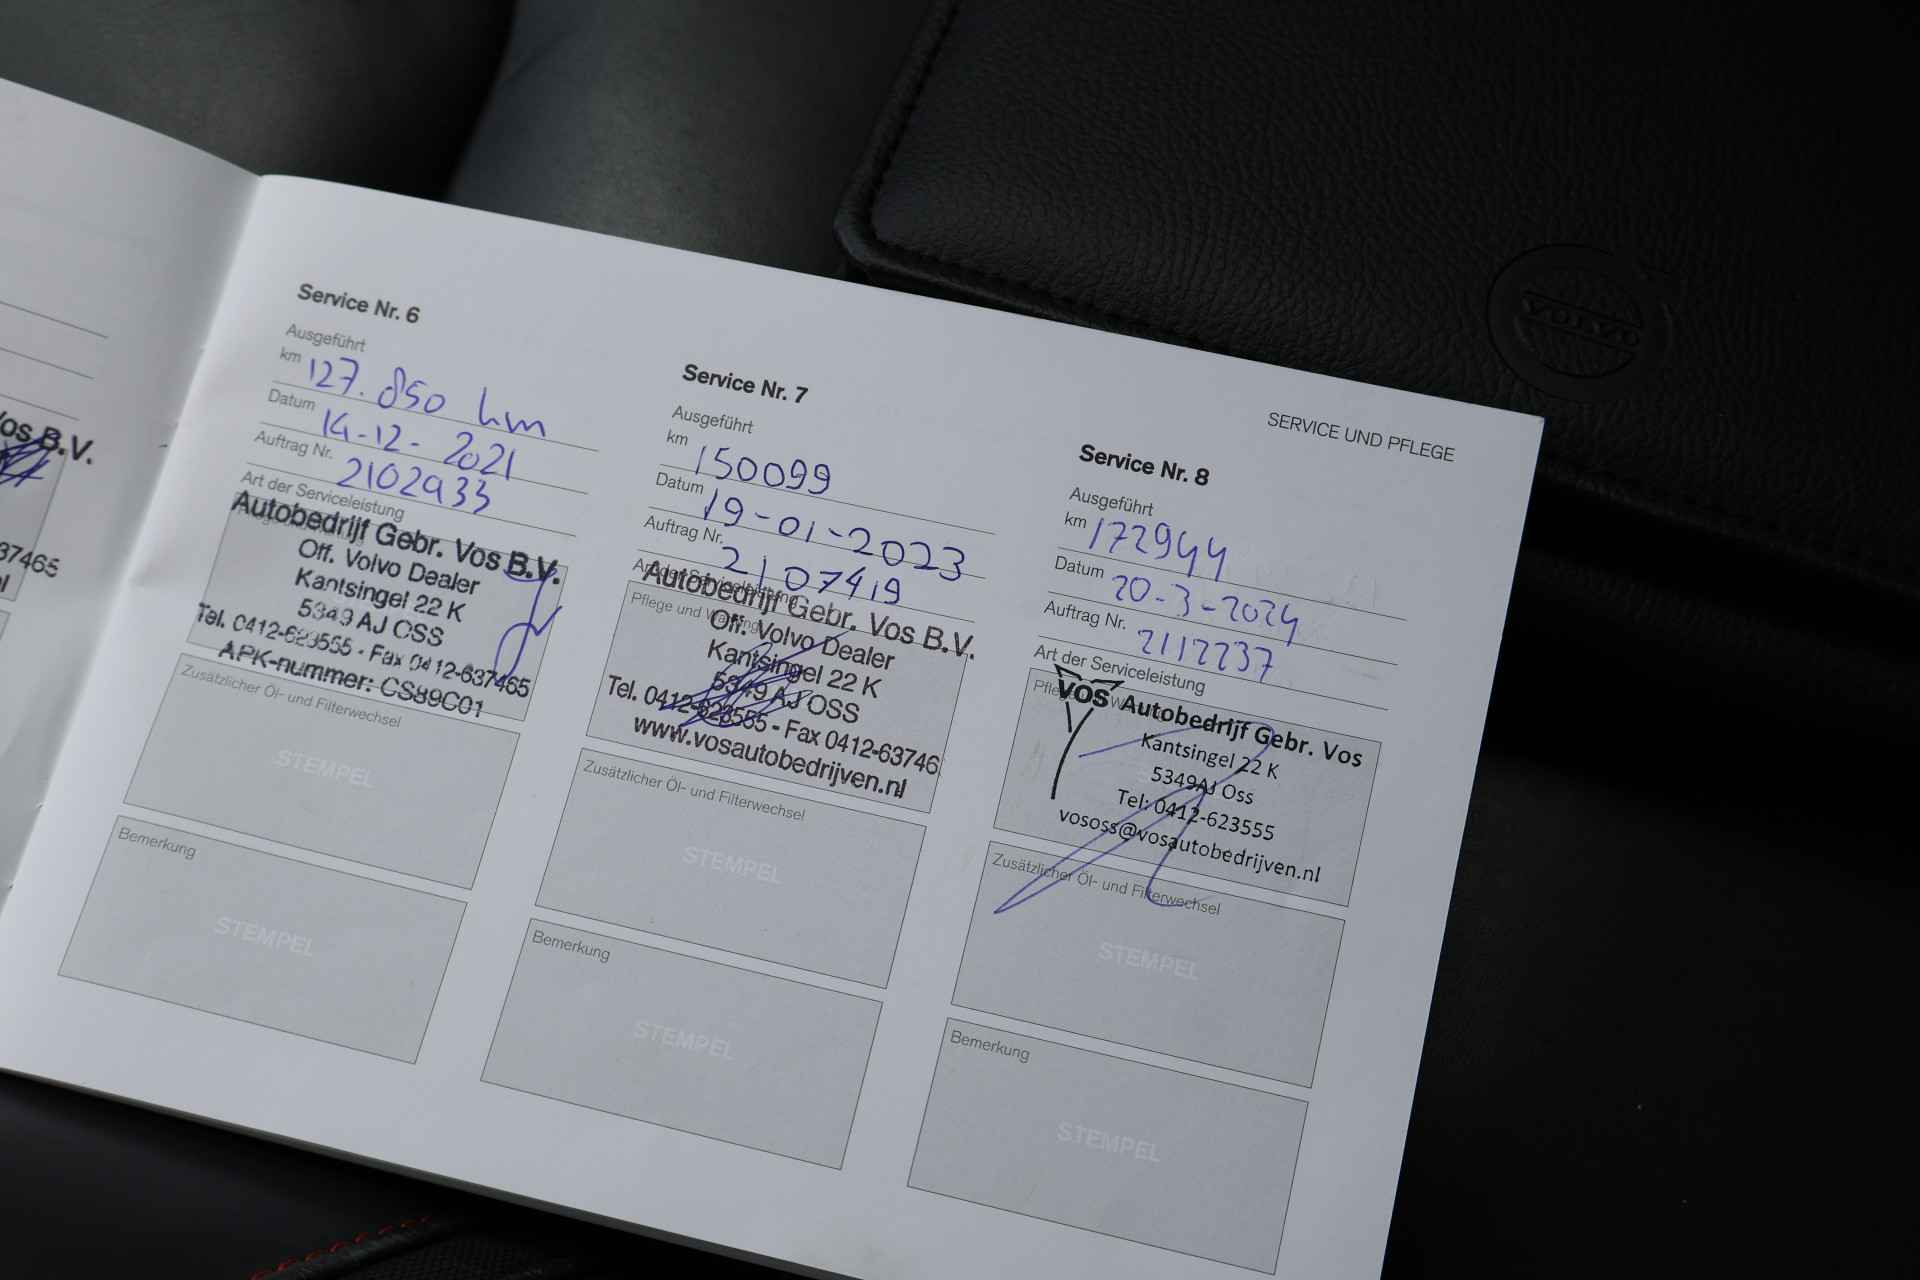 os B.V.
37465
nl
Service Nr. 6
Ausgeführt
km 127.850 km
Datum 14-12-2021
Auftrag Nr. 2102933
Art der Serviceleistung
Autobedrijf Gebr. Vos B.V.
Off. Volvo Dealer
Kantsingel 22 K
5349 AJ OSS
Tel. 0412-623555 - Fax 0412-637465
APK-nummer: CS89C01
Zusätzlicher Öl- und Filterwechsel
STEMPEL
Bemerkung
STEMPEL
Service Nr. 7
Ausgeführt
km 150099
Datum 19-01-2023
Auftrag Nr. 2107419
Art der Serviceleistung
Pflege und Wartung
Autobedrijf Gebr. Vos B.V.
Off. Volvo Dealer
Kantsingel 22 K
5349 AJ OSS
Tel. 0412-623555 - Fax 0412-63746
www.vosautobedrijven.nl
Zusätzlicher Öl- und Filterwechsel
STEMPEL
Bemerkung
STEMPEL
SERVICE UND PFLEGE
Service Nr. 8
Ausgeführt
km 172944
Datum 20-3-2024
Auftrag Nr. 2112237
Art der Serviceleistung
vos Autobedrijf Gebr. Vos
Kantsingel 22 K
5349AJ Oss
Tel: 0412-623555
vososs@vosautobedrijven.nl
Zusätzlicher Öl- und Filterwechsel
STEMPEL
Bemerkung
STEMPEL
VOLVO